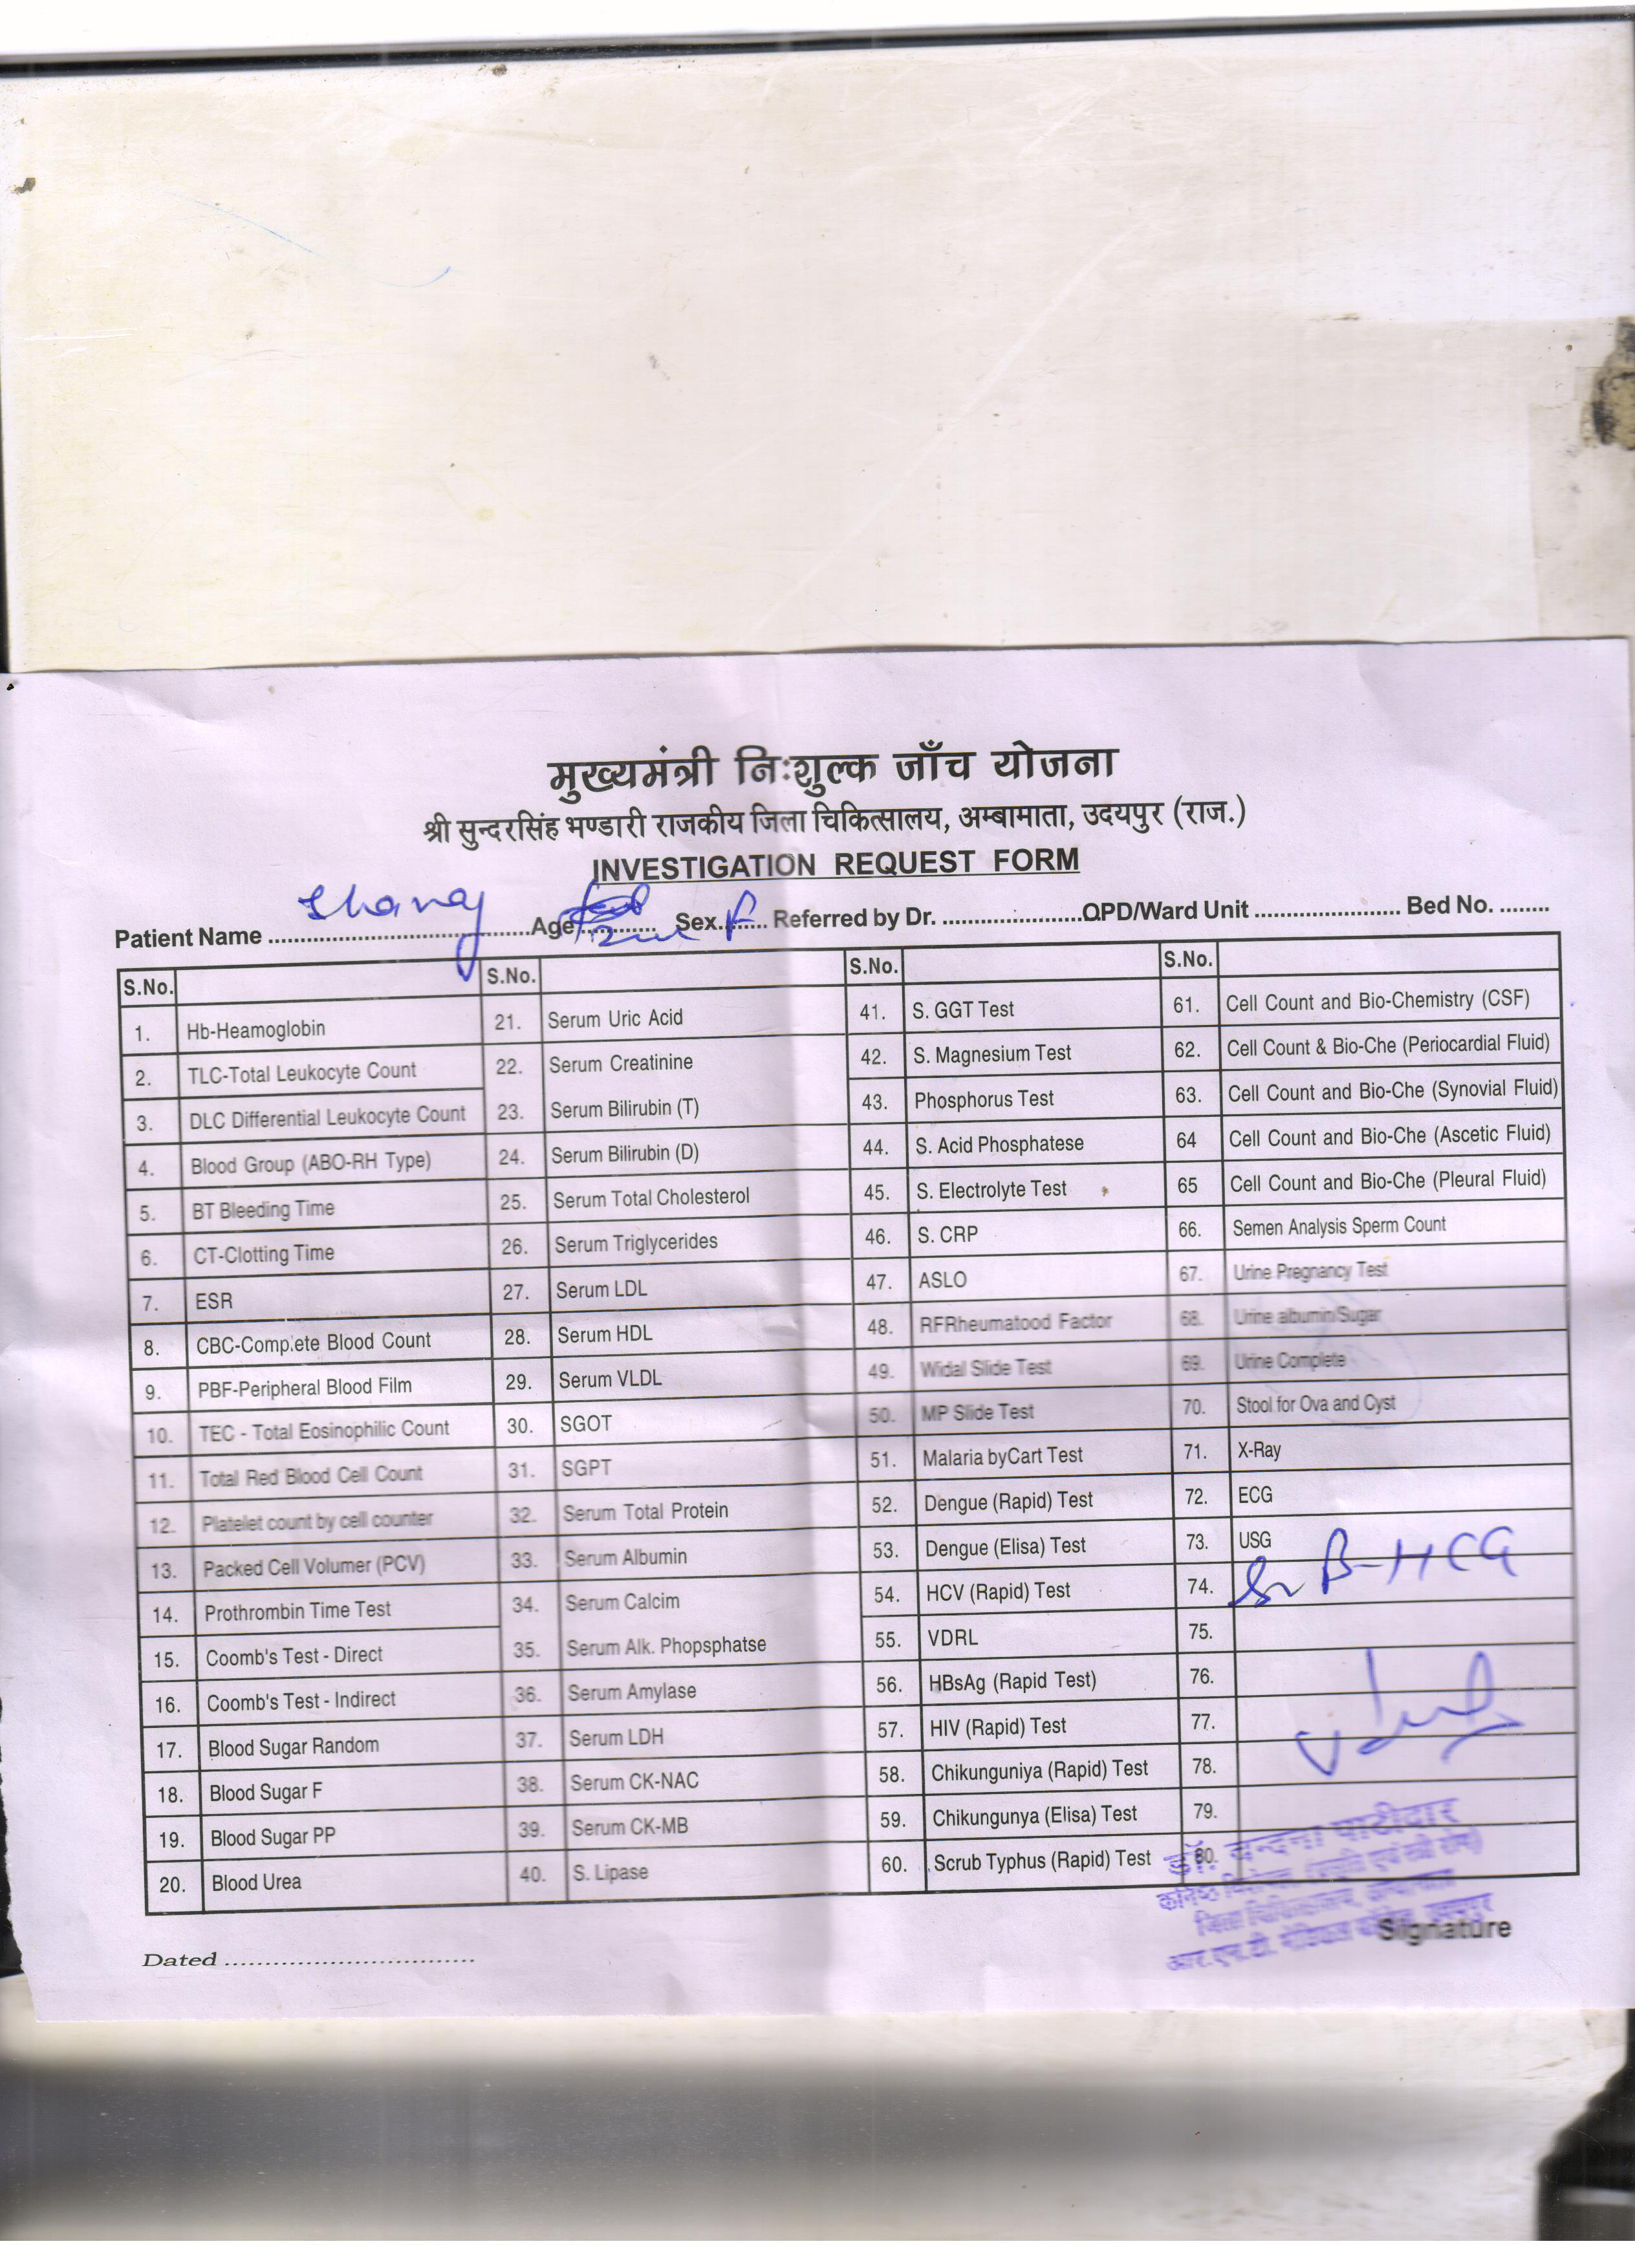 मुख्यमंत्री निःशुल्क जाँच योजना
श्री सुन्दरसिंह भण्डारी राजकीय जिला चिकित्सालय, अम्बामाता, उदयपुर (राज.)
INVESTIGATION REQUEST FORM
Patient Name ........ Age ........ Sex. F ........ Referred by Dr. ........ OPD/Ward Unit ........ Bed No. ........
S.No. S.No. S.No. S.No.
1. Hb-Heamoglobin 21. Serum Uric Acid 41. S. GGT Test 61. Cell Count and Bio-Chemistry (CSF)
2. TLC-Total Leukocyte Count 22. Serum Creatinine 42. S. Magnesium Test 62. Cell Count & Bio-Che (Periocardial Fluid)
3. DLC Differential Leukocyte Count 23. Serum Bilirubin (T) 43. Phosphorus Test 63. Cell Count and Bio-Che (Synovial Fluid)
4. Blood Group (ABO-RH Type) 24. Serum Bilirubin (D) 44. S. Acid Phosphatese 64 Cell Count and Bio-Che (Ascetic Fluid)
5. BT Bleeding Time 25. Serum Total Cholesterol 45. S. Electrolyte Test 65 Cell Count and Bio-Che (Pleural Fluid)
6. CT-Clotting Time 26. Serum Triglycerides 46. S. CRP 66. Semen Analysis Sperm Count
7. ESR 27. Serum LDL 47. ASLO 67. Urine Pregnancy Test
8. CBC-Complete Blood Count 28. Serum HDL 48. RFRheumatood Factor 68. Urine albumin/Sugar
9. PBF-Peripheral Blood Film 29. Serum VLDL 49. Widal Slide Test 69. Urine Complete
10. TEC - Total Eosinophilic Count 30. SGOT 50. MP Slide Test 70. Stool for Ova and Cyst
11. Total Red Blood Cell Count 31. SGPT 51. Malaria byCart Test 71. X-Ray
12. Platelet count by cell counter 32. Serum Total Protein 52. Dengue (Rapid) Test 72. ECG
13. Packed Cell Volumer (PCV) 33. Serum Albumin 53. Dengue (Elisa) Test 73. USG
14. Prothrombin Time Test 34. Serum Calcim 54. HCV (Rapid) Test 74. Sr β-HCG
15. Coomb's Test - Direct 35. Serum Alk. Phopsphatse 55. VDRL 75.
16. Coomb's Test - Indirect 36. Serum Amylase 56. HBsAg (Rapid Test) 76.
17. Blood Sugar Random 37. Serum LDH 57. HIV (Rapid) Test 77.
18. Blood Sugar F 38. Serum CK-NAC 58. Chikunguniya (Rapid) Test 78.
19. Blood Sugar PP 39. Serum CK-MB 59. Chikungunya (Elisa) Test 79.
20. Blood Urea 40. S. Lipase 60. Scrub Typhus (Rapid) Test 80.
डॉ. वन्दना पाटीदार
Signature
Dated ........